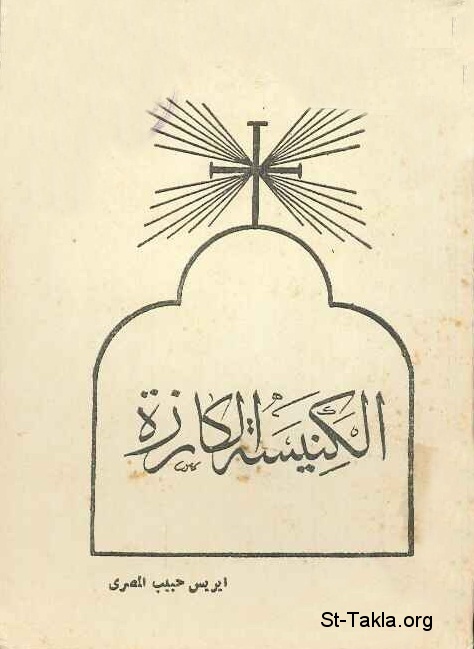 الكَنِيسَة الكارزة
ايريس حبيب المصرى
St-Takla.org